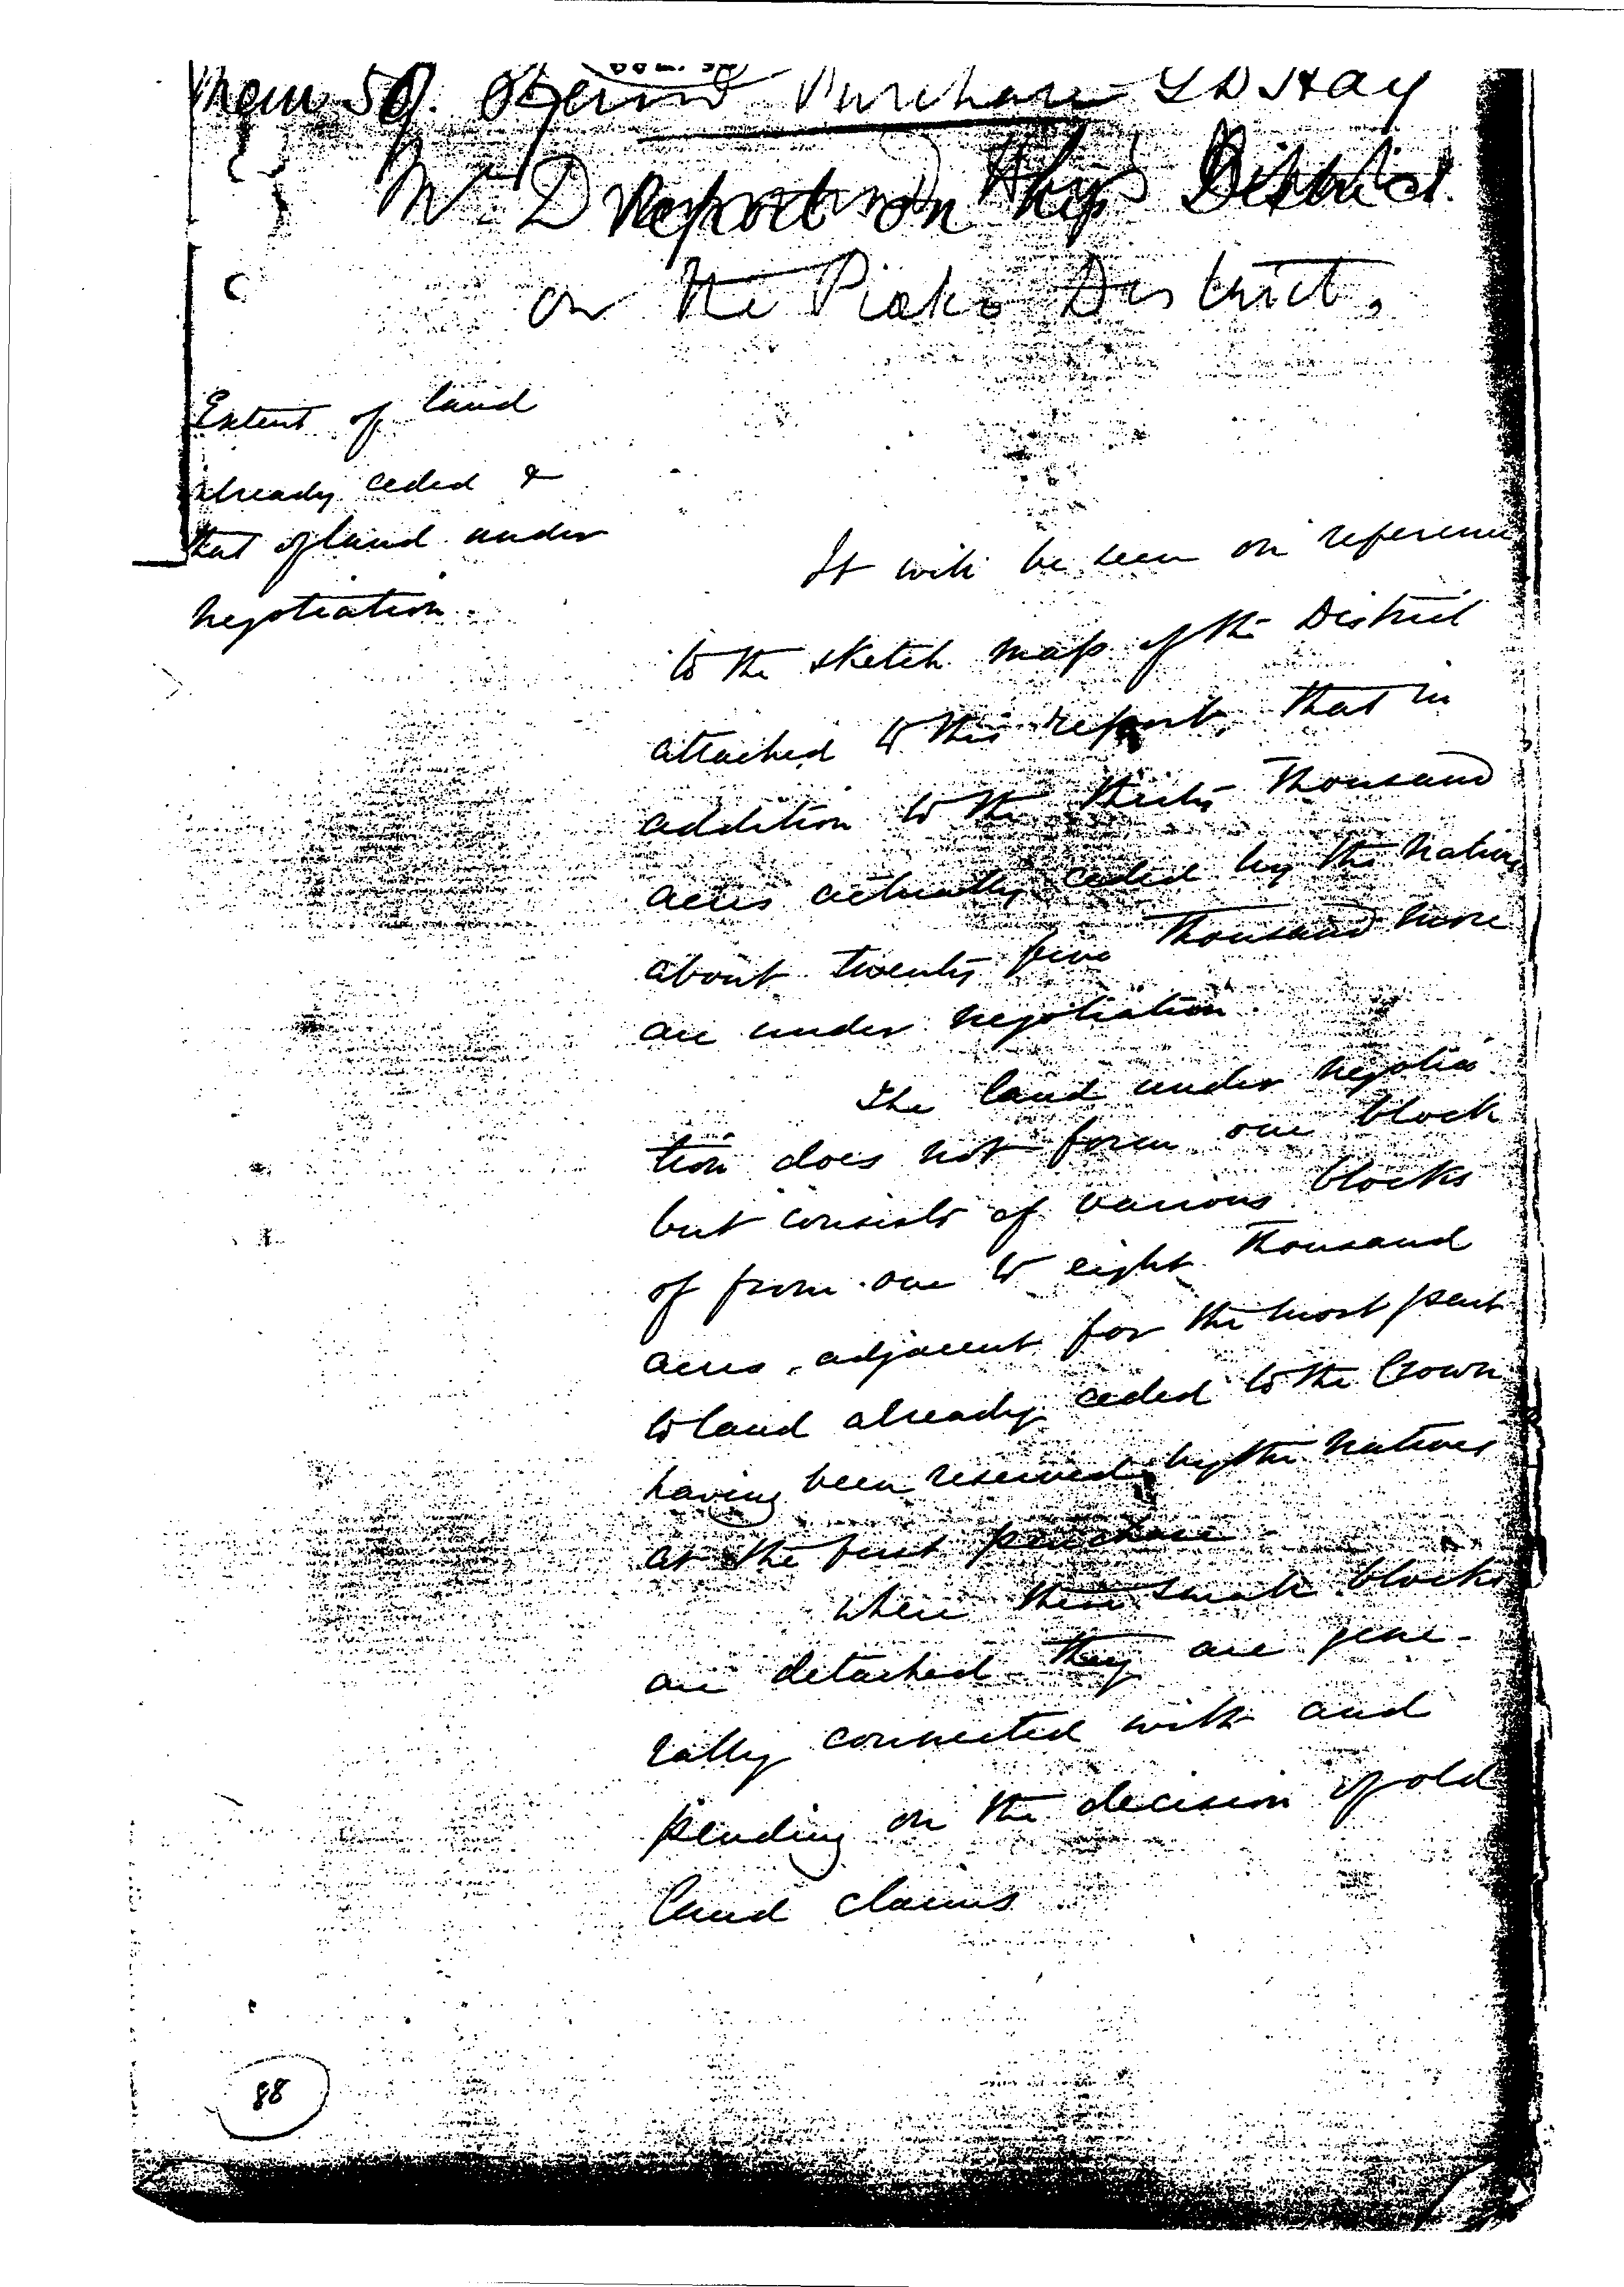 Purchase
Report on this District
on the Piako District,
Extent of land
already ceded &
that of land under
negotiation.
It will be seen on reference
to the sketch map of the District
attached to this report, that in
addition to the thirty thousand
acres actually ceded by the Natives
about twenty five thousand more
are under negotiation.
The land under negotia
tion does not form one block
but consists of various blocks
of from one to eight thousand
acres, adjacent for the most part
to land already ceded to the Crown
having been reserved by the Natives
at the first purchase.
Where these small blocks
are detached they are gene-
rally connected with and
pending on the decision of old
land claims
88